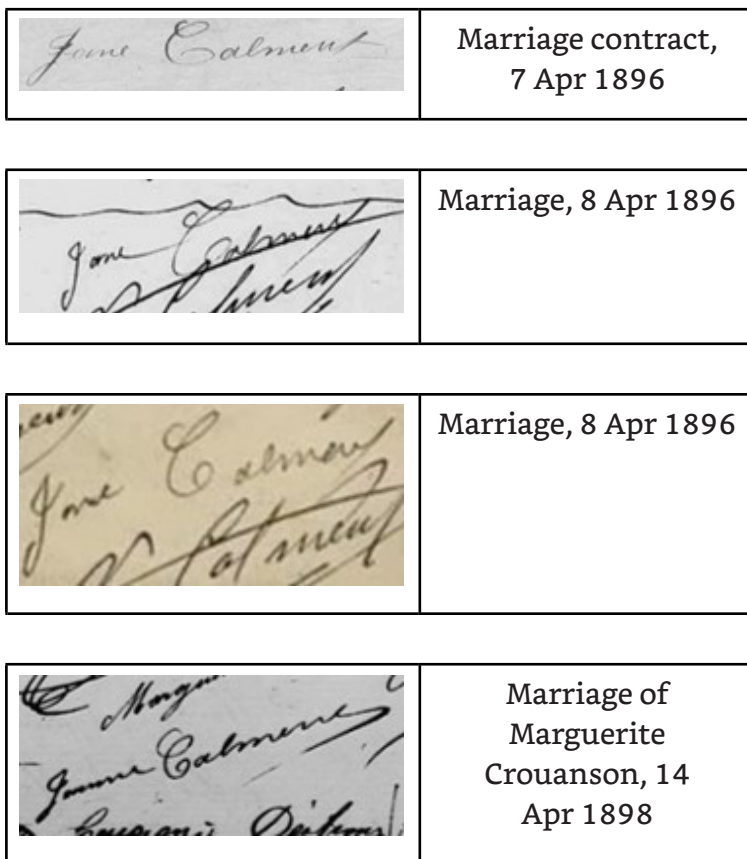 Jane Calment
Marriage contract,
7 Apr 1896
Jane Calment
Calment
Marriage, 8 Apr 1896
Jane Calment
Calment
Marriage, 8 Apr 1896
Jeanne Calment
Marriage of
Marguerite
Crouanson, 14
Apr 1898